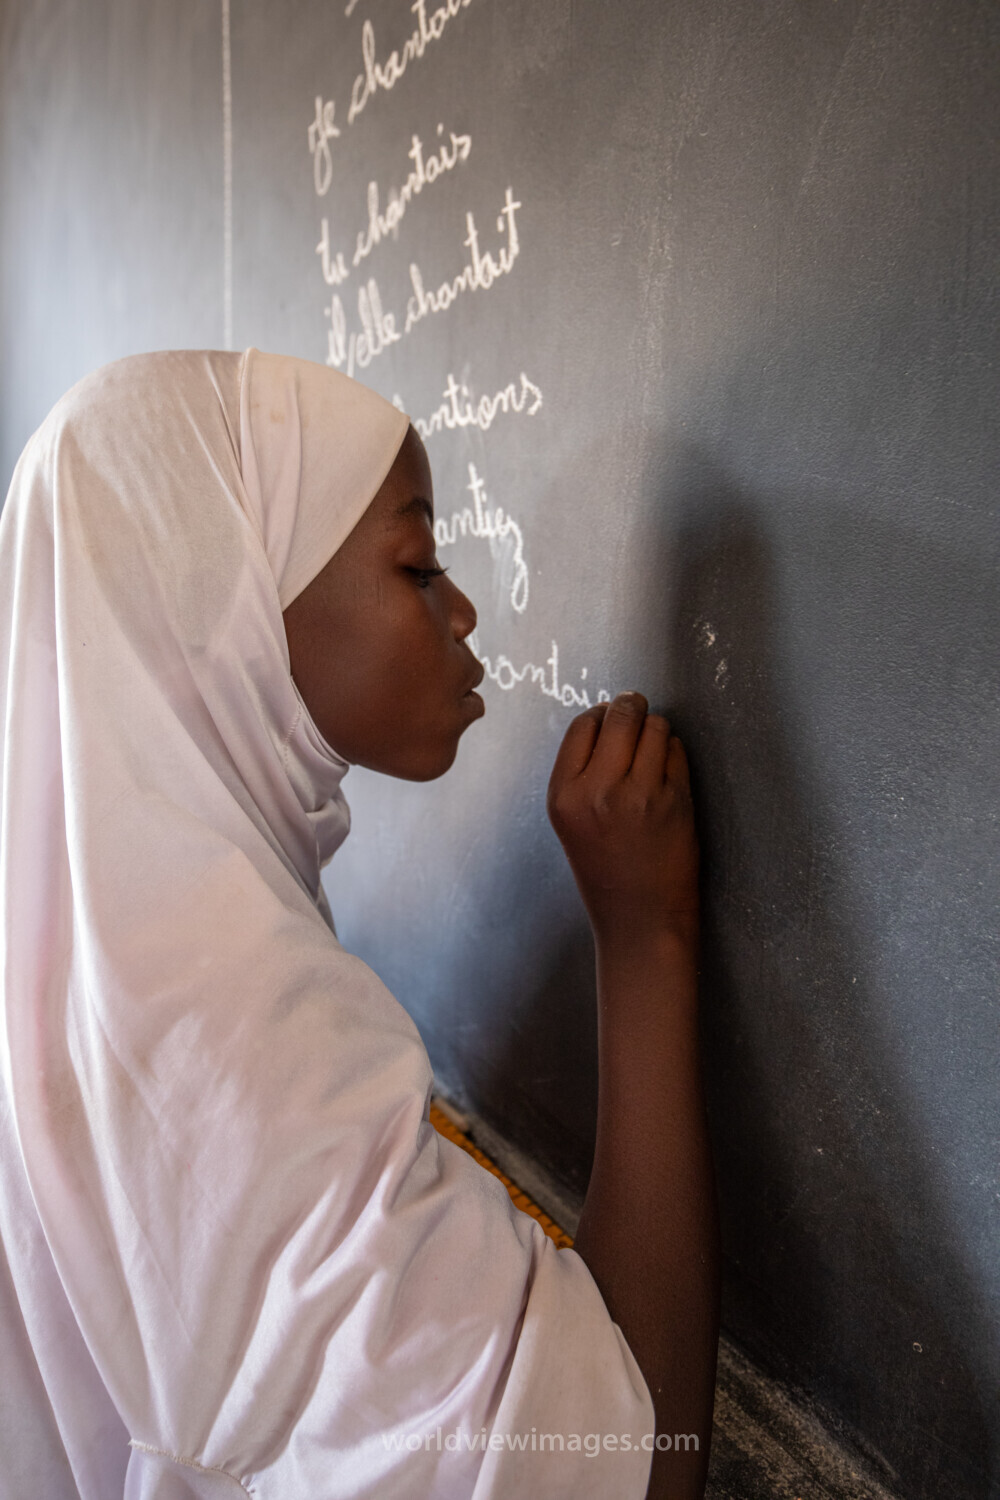 je chantais
tu chantais
il/elle chantait
antions
antiez
hantais
worldviewimages.com